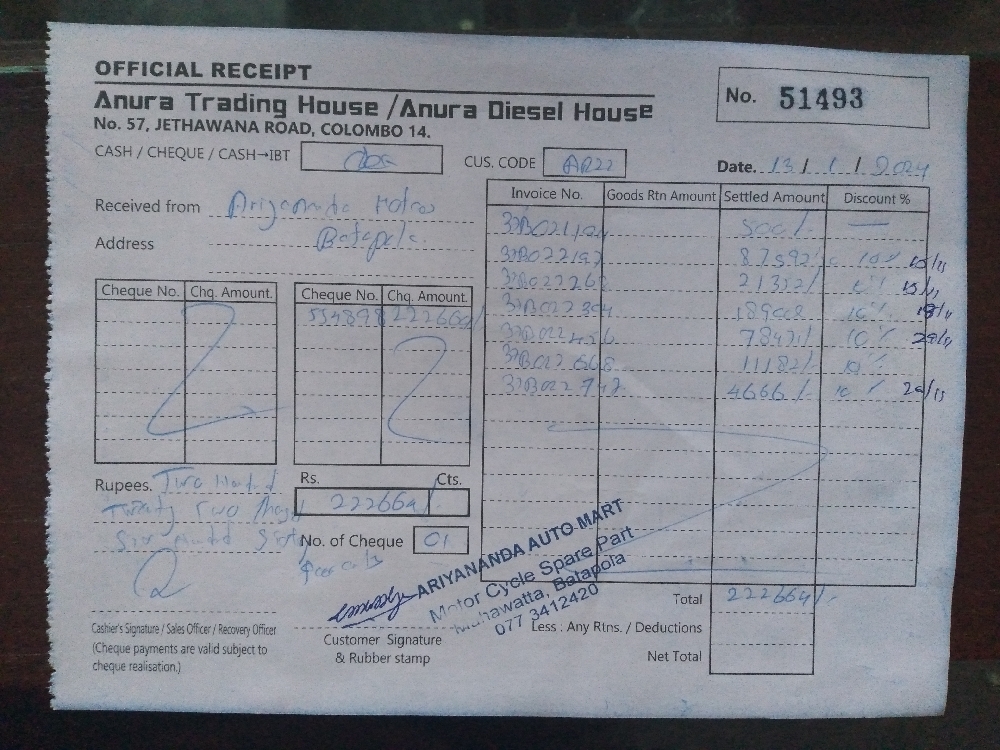 OFFICIAL RECEIPT
Anura Trading House /Anura Diesel House
No. 57, JETHAWANA ROAD, COLOMBO 14.
No. 51493
CASH / CHEQUE / CASH→IBT
CUS. CODE AR22
Date. 13 / 1 / 2024
Received from
Address Batapola
Invoice No. Goods Rtn Amount Settled Amount Discount %
32B021194 500/- —
32B022192 87592/- 10% 15/11
32B022268 21352/- 10% 15/11
32B022304 18900/- 10% 18/11
32B022456 78421/- 10% 20/11
32B022668 11182/- 10%
32B022742 4666/- 10% 20/11
Cheque No. Chq. Amount.
Cheque No. Chq. Amount.
534898 222664/-
Rupees. Two Hundred
Twenty Two
Six Hundred Sixty
Four only
Rs. Cts.
222664/-
No. of Cheque 01
ARIYANANDA AUTO MART
Motor Cycle Spare Part
Mahawatta, Batapola
077 3412420
Total 222664/-
Less : Any Rtns. / Deductions
Net Total
Cashier's Signature / Sales Officer / Recovery Officer
(Cheque payments are valid subject to
cheque realisation.)
Customer Signature
& Rubber stamp